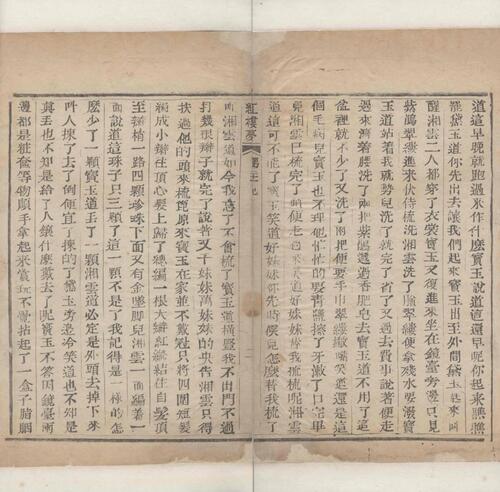 道這早晚就跑過來作什麼寶玉說道這還早呢起來瞧瞧
罷黛玉道你先出去讓我們起來寶玉出至外間黛玉起來叫
醒湘雲二人都穿了衣裳寶玉又復進來坐在鏡臺旁邊只見
紫鵑翠縷進來伏侍梳洗湘雲洗了臉翠縷便拿殘水要潑寶
玉道站着我就勢兒洗了就完了省了又過去費事說著便走
過來灣著腰洗了兩把紫鵑遞過香肥皂去寶玉道不用了這
盆裡就不少了又洗了兩把便要手巾翠縷撇嘴笑道還是這
個毛病兒寶玉也不理他忙忙的要青鹽擦了牙漱了口完畢
見湘雲已梳完了頭便走過來笑道好妹妹替我梳梳呢湘雲
道這可不能了寶玉笑道好妹妹你先時候兒怎麼替我梳了
紅樓夢
呢湘雲道如今我忘了不會梳了寶玉道橫豎我不出門不過
打幾根辮子就完了說着又千妹妹萬妹妹的央告湘雲只得
扶過他的頭來梳篦原來寶玉在家並不戴冠只將四圍短髮
編成小辮往頂心髮上歸了總編一根大辮紅縧結住自髮頂
至辮梢一路四顆珍珠下面又有金墜脚兒湘雲一面編着一
面說道這珠子只三顆了這一顆不是了我記得是一樣的怎
麼少了一顆寶玉道丟了一顆湘雲道必定是外頭去掉下來
叫人揀了去了倒便宜了揀的了黛玉旁邊冷笑道也不知是
真丟也不知是給了人鑲什麼戴去了呢寶玉不答因鏡臺兩
邊都是粧奩等物順手拿起來賞玩不覺拈起了一盒子胭脂